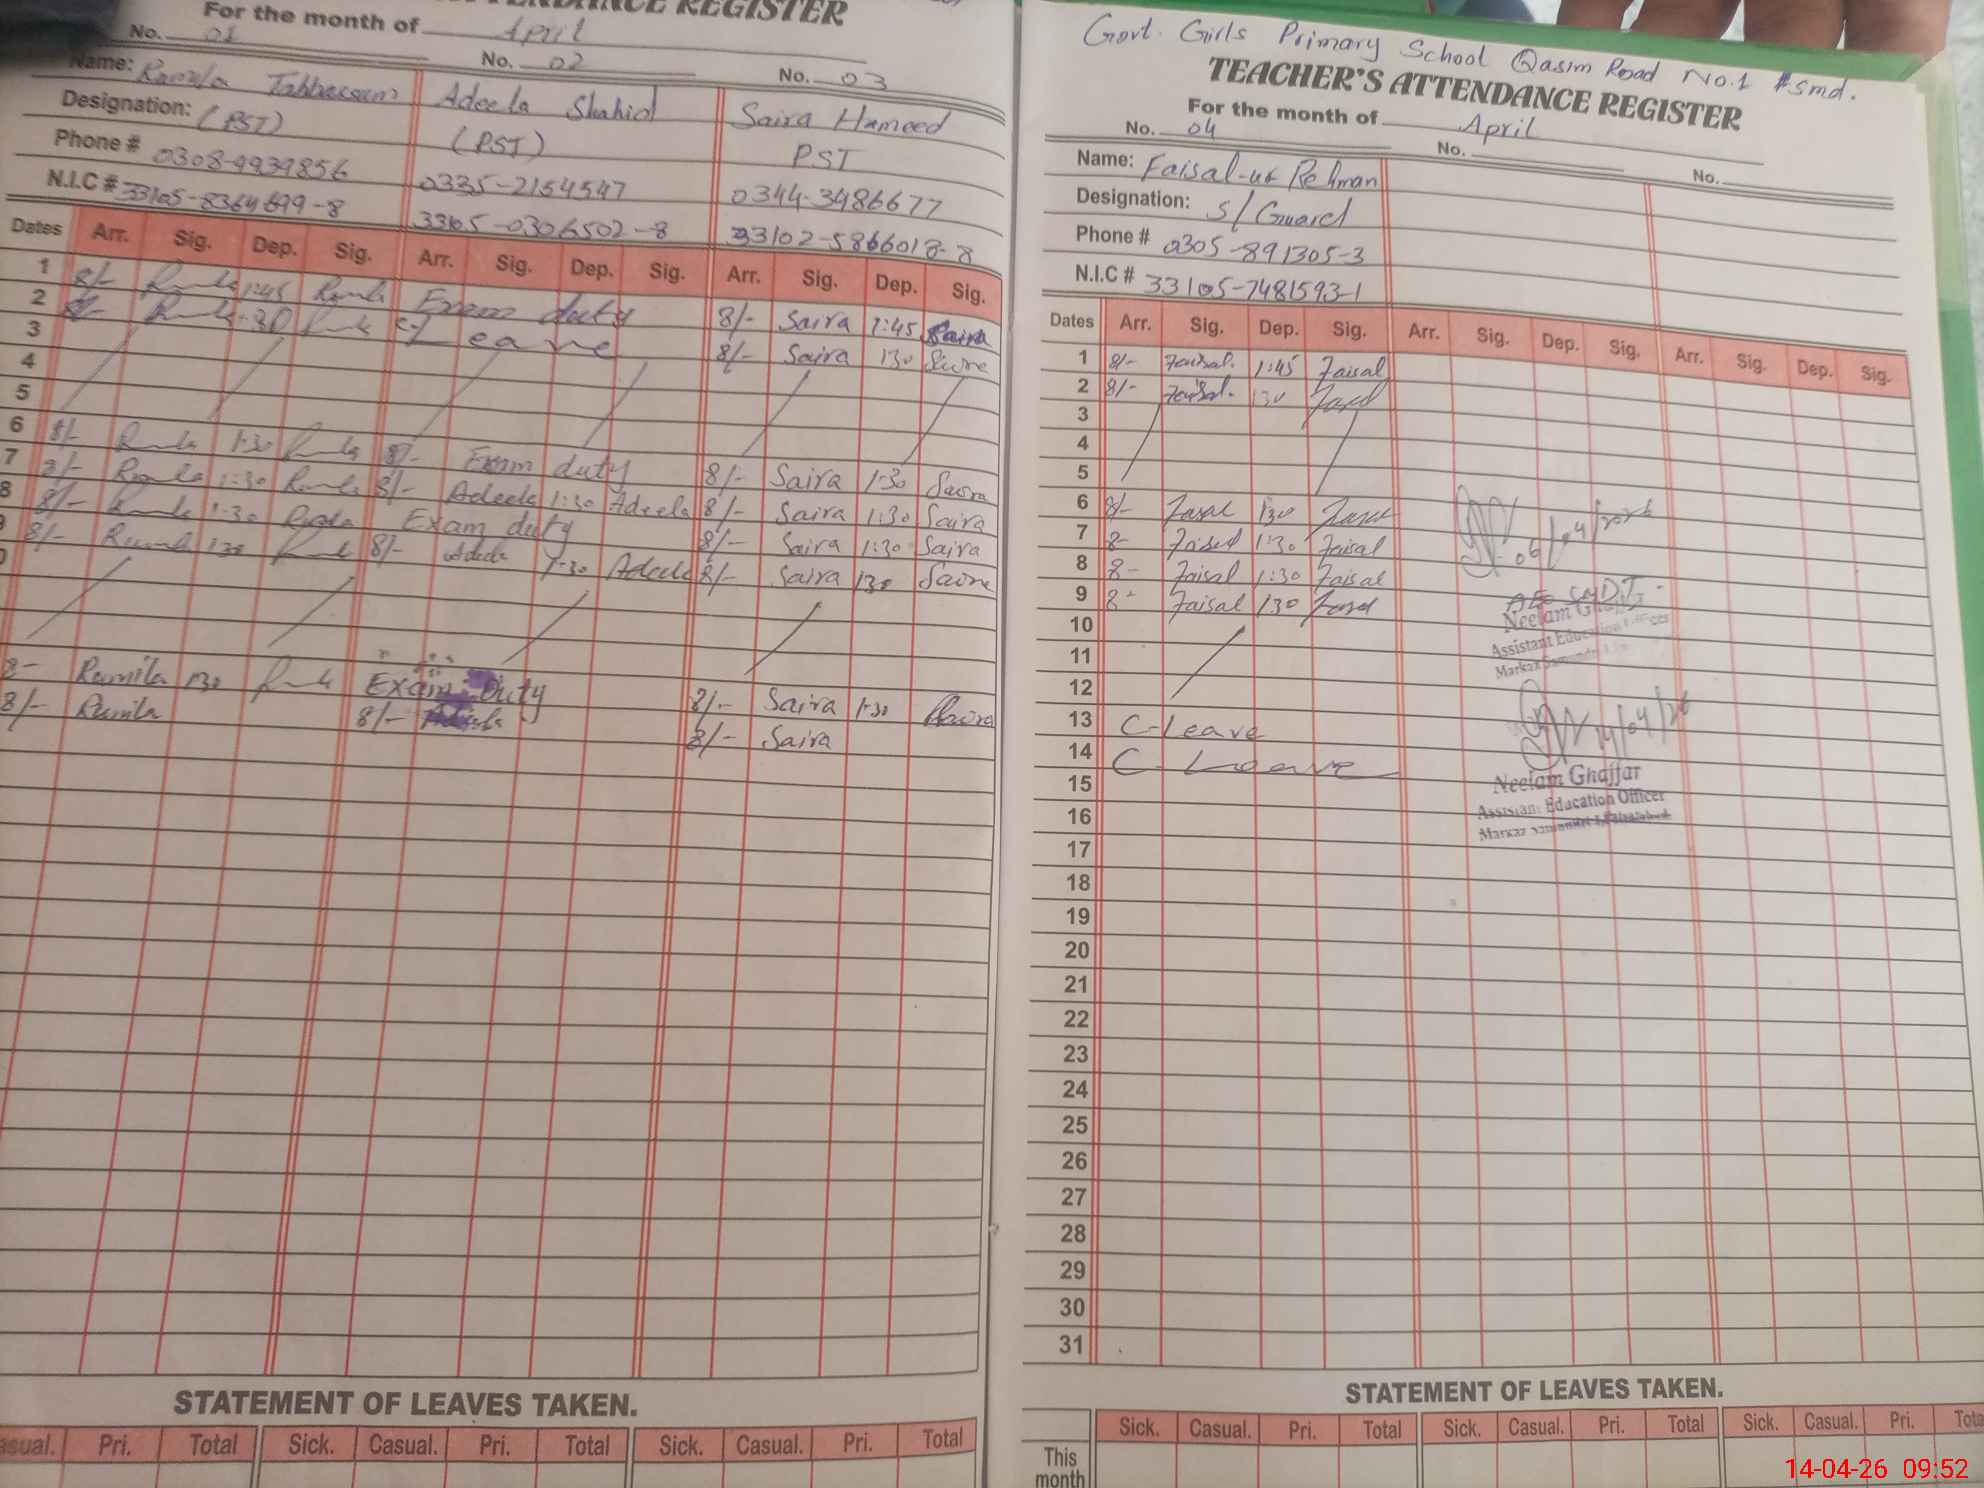 ATTENDANCE REGISTER
For the month of April
No. 01 No. 02 No. 03
Name: Ramila Tabbassum Adeela Shahid Saira Hameed
Designation: (PST) (PST) PST
Phone # 0308-9939856 0335-2154547 0344-3486677
N.I.C # 33105-8364699-8 33105-0306502-8 33102-5866018-8
Dates Arr. Sig. Dep. Sig. Arr. Sig. Dep. Sig. Arr. Sig. Dep. Sig.
1 8/- Ramila 1:45 Ramila Exam duty 8/- Saira 1:45 Saira
2 8/- Ramila 1:30 Ramila C-Leave 8/- Saira 130 Saira
3
4
5
6 8/- Ramila 1:30 Ramila 8/- Exam duty 8/- Saira 1:30 Saira
7 8/- Ramila 1:30 Ramila 8/- Adeela 1:30 Adeela 8/- Saira 1:30 Saira
8 8/- Ramila 1:30 Ramila Exam duty 8/- Saira 1:30 Saira
9 8/- Ramila 130 Ramila 8/- Adeela 1:30 Adeela 8/- Saira 130 Saira
8- Ramila 130 Ramila Exam Duty 8/- Saira 1:30 Saira
8/- Ramila 8/- Adeela 8/- Saira
STATEMENT OF LEAVES TAKEN.
Casual. Pri. Total Sick. Casual. Pri. Total Sick. Casual. Pri. Total
Govt. Girls Primary School Qasim Road No.1 #smd.
TEACHER'S ATTENDANCE REGISTER
For the month of April
No. 04 No. No.
Name: Faisal-ur Rehman
Designation: S/Guard
Phone # 0305-891305-3
N.I.C # 33105-7481593-1
Dates Arr. Sig. Dep. Sig. Arr. Sig. Dep. Sig. Arr. Sig. Dep. Sig.
1 8/- Faisal. 1:45 Faisal
2 8/- Faisal. 130 Faisal
3
4
5
6 8/- Faisal 130 Faisal
06/04/2026
7 8- Faisal 1:30 Faisal
8 8- Faisal 1:30 Faisal
9 8- Faisal 130 Faisal
Neelam Ghaffar
Assistant Education Officer
10
11
12
13 C-Leave
14/04/26
14 C-Leave
15
Neelam Ghaffar
Assistant Education Officer
Markaz Samundri
16
17
18
19
20
21
22
23
24
25
26
27
28
29
30
31
STATEMENT OF LEAVES TAKEN.
Sick. Casual. Pri. Total Sick. Casual. Pri. Total Sick. Casual. Pri. Total
This month
14-04-26 09:52